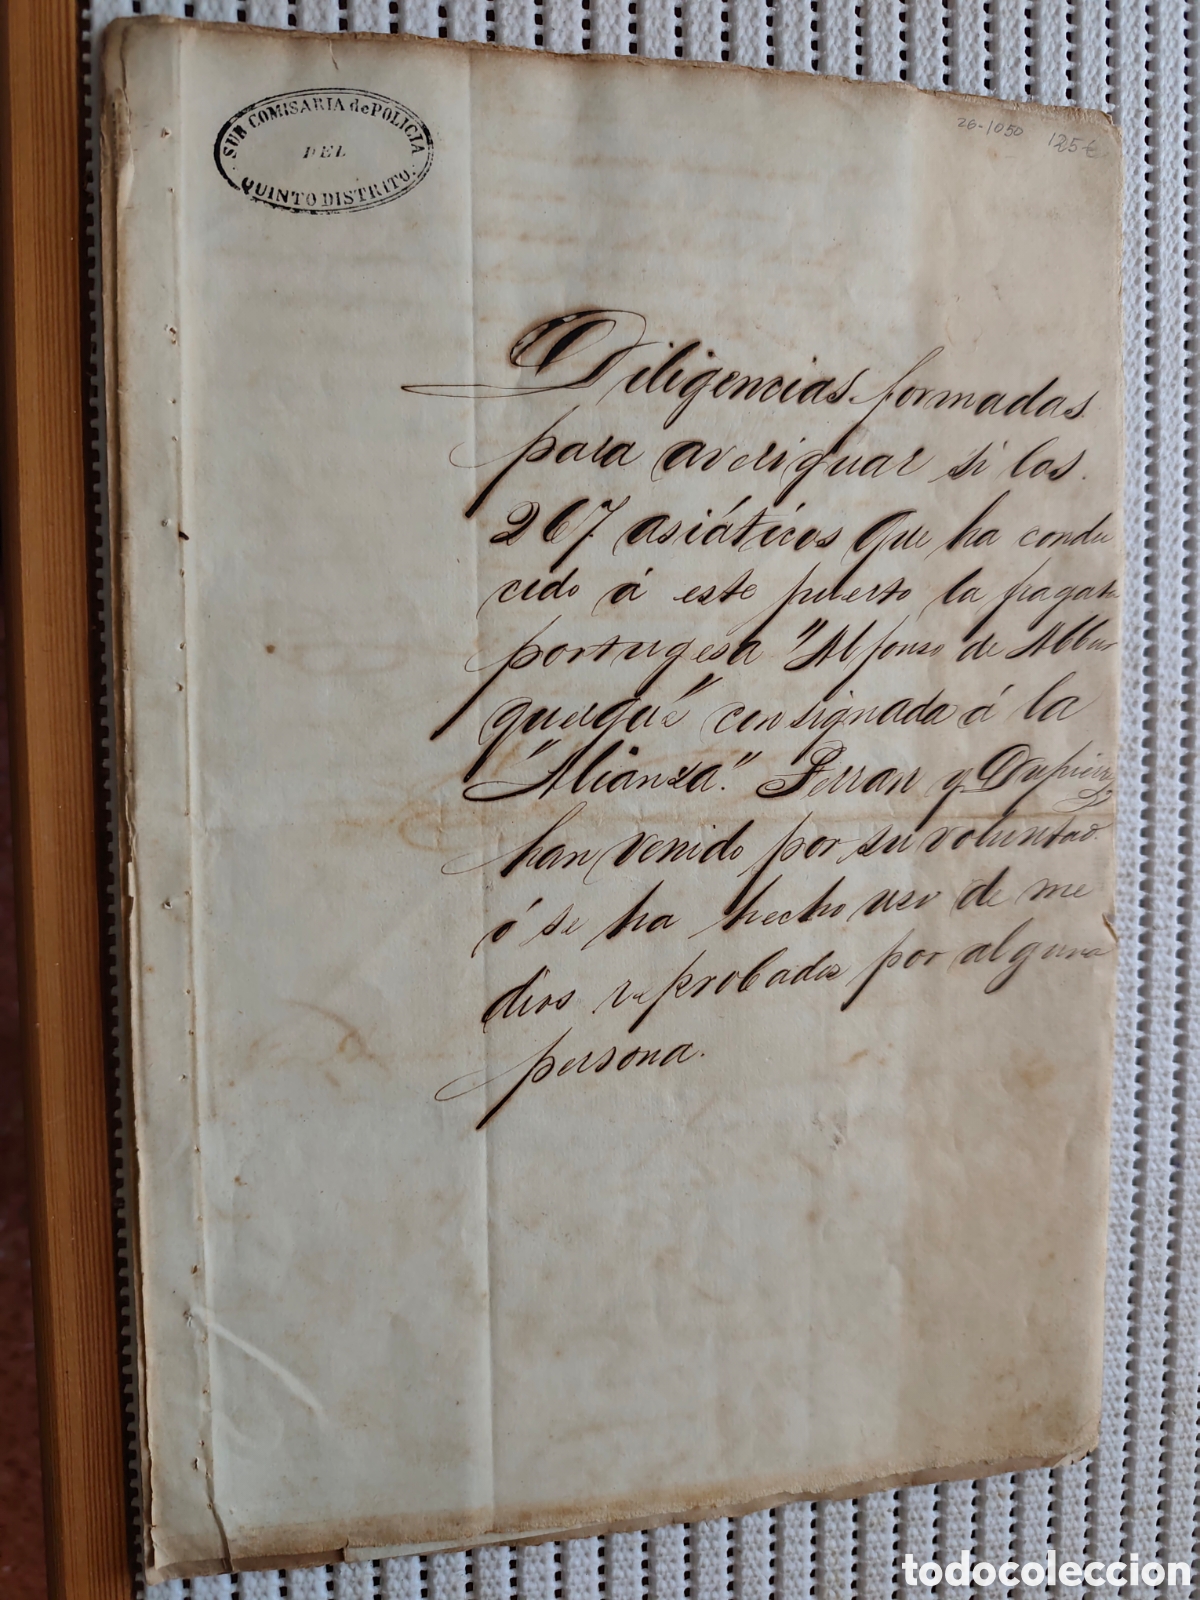 SUB COMISARIA de POLICIA
DEL
QUINTO DISTRITO.
26-1050 125€
Diligencias formadas
para averiguar si los
267 asiáticos que ha condu
cido á este puerto la fragata
portugesa "Alfonso de Albur
querque" consignada á la
"Alianza." Ferran y Dupierris
han venido por su voluntad
ó se ha hecho uso de me
dios reprobados por alguna
persona.
todocoleccion